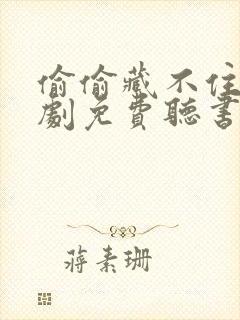 偷偷藏不住
劇免費聽書
蔣素珊